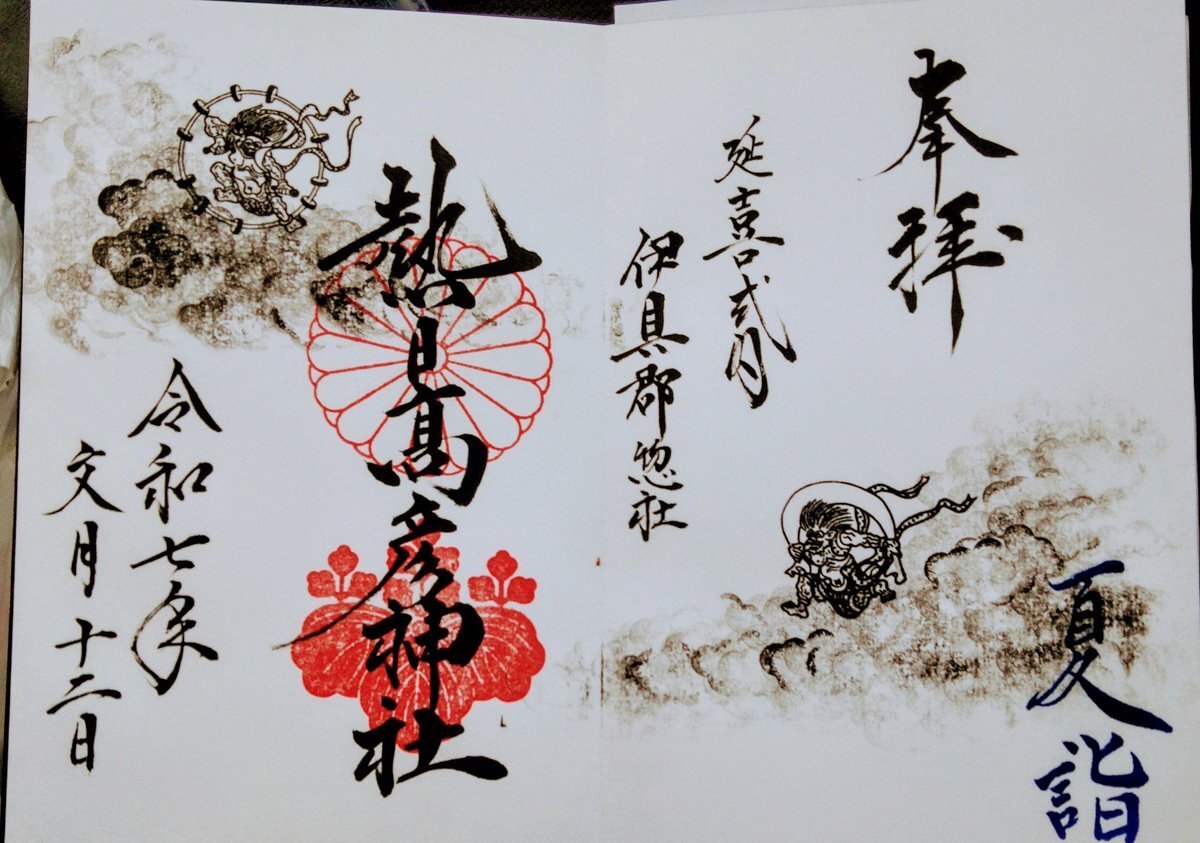 奉拝
延喜式内
伊具郡惣社
夏詣
熱日高彦神社
令和七年
文月十二日